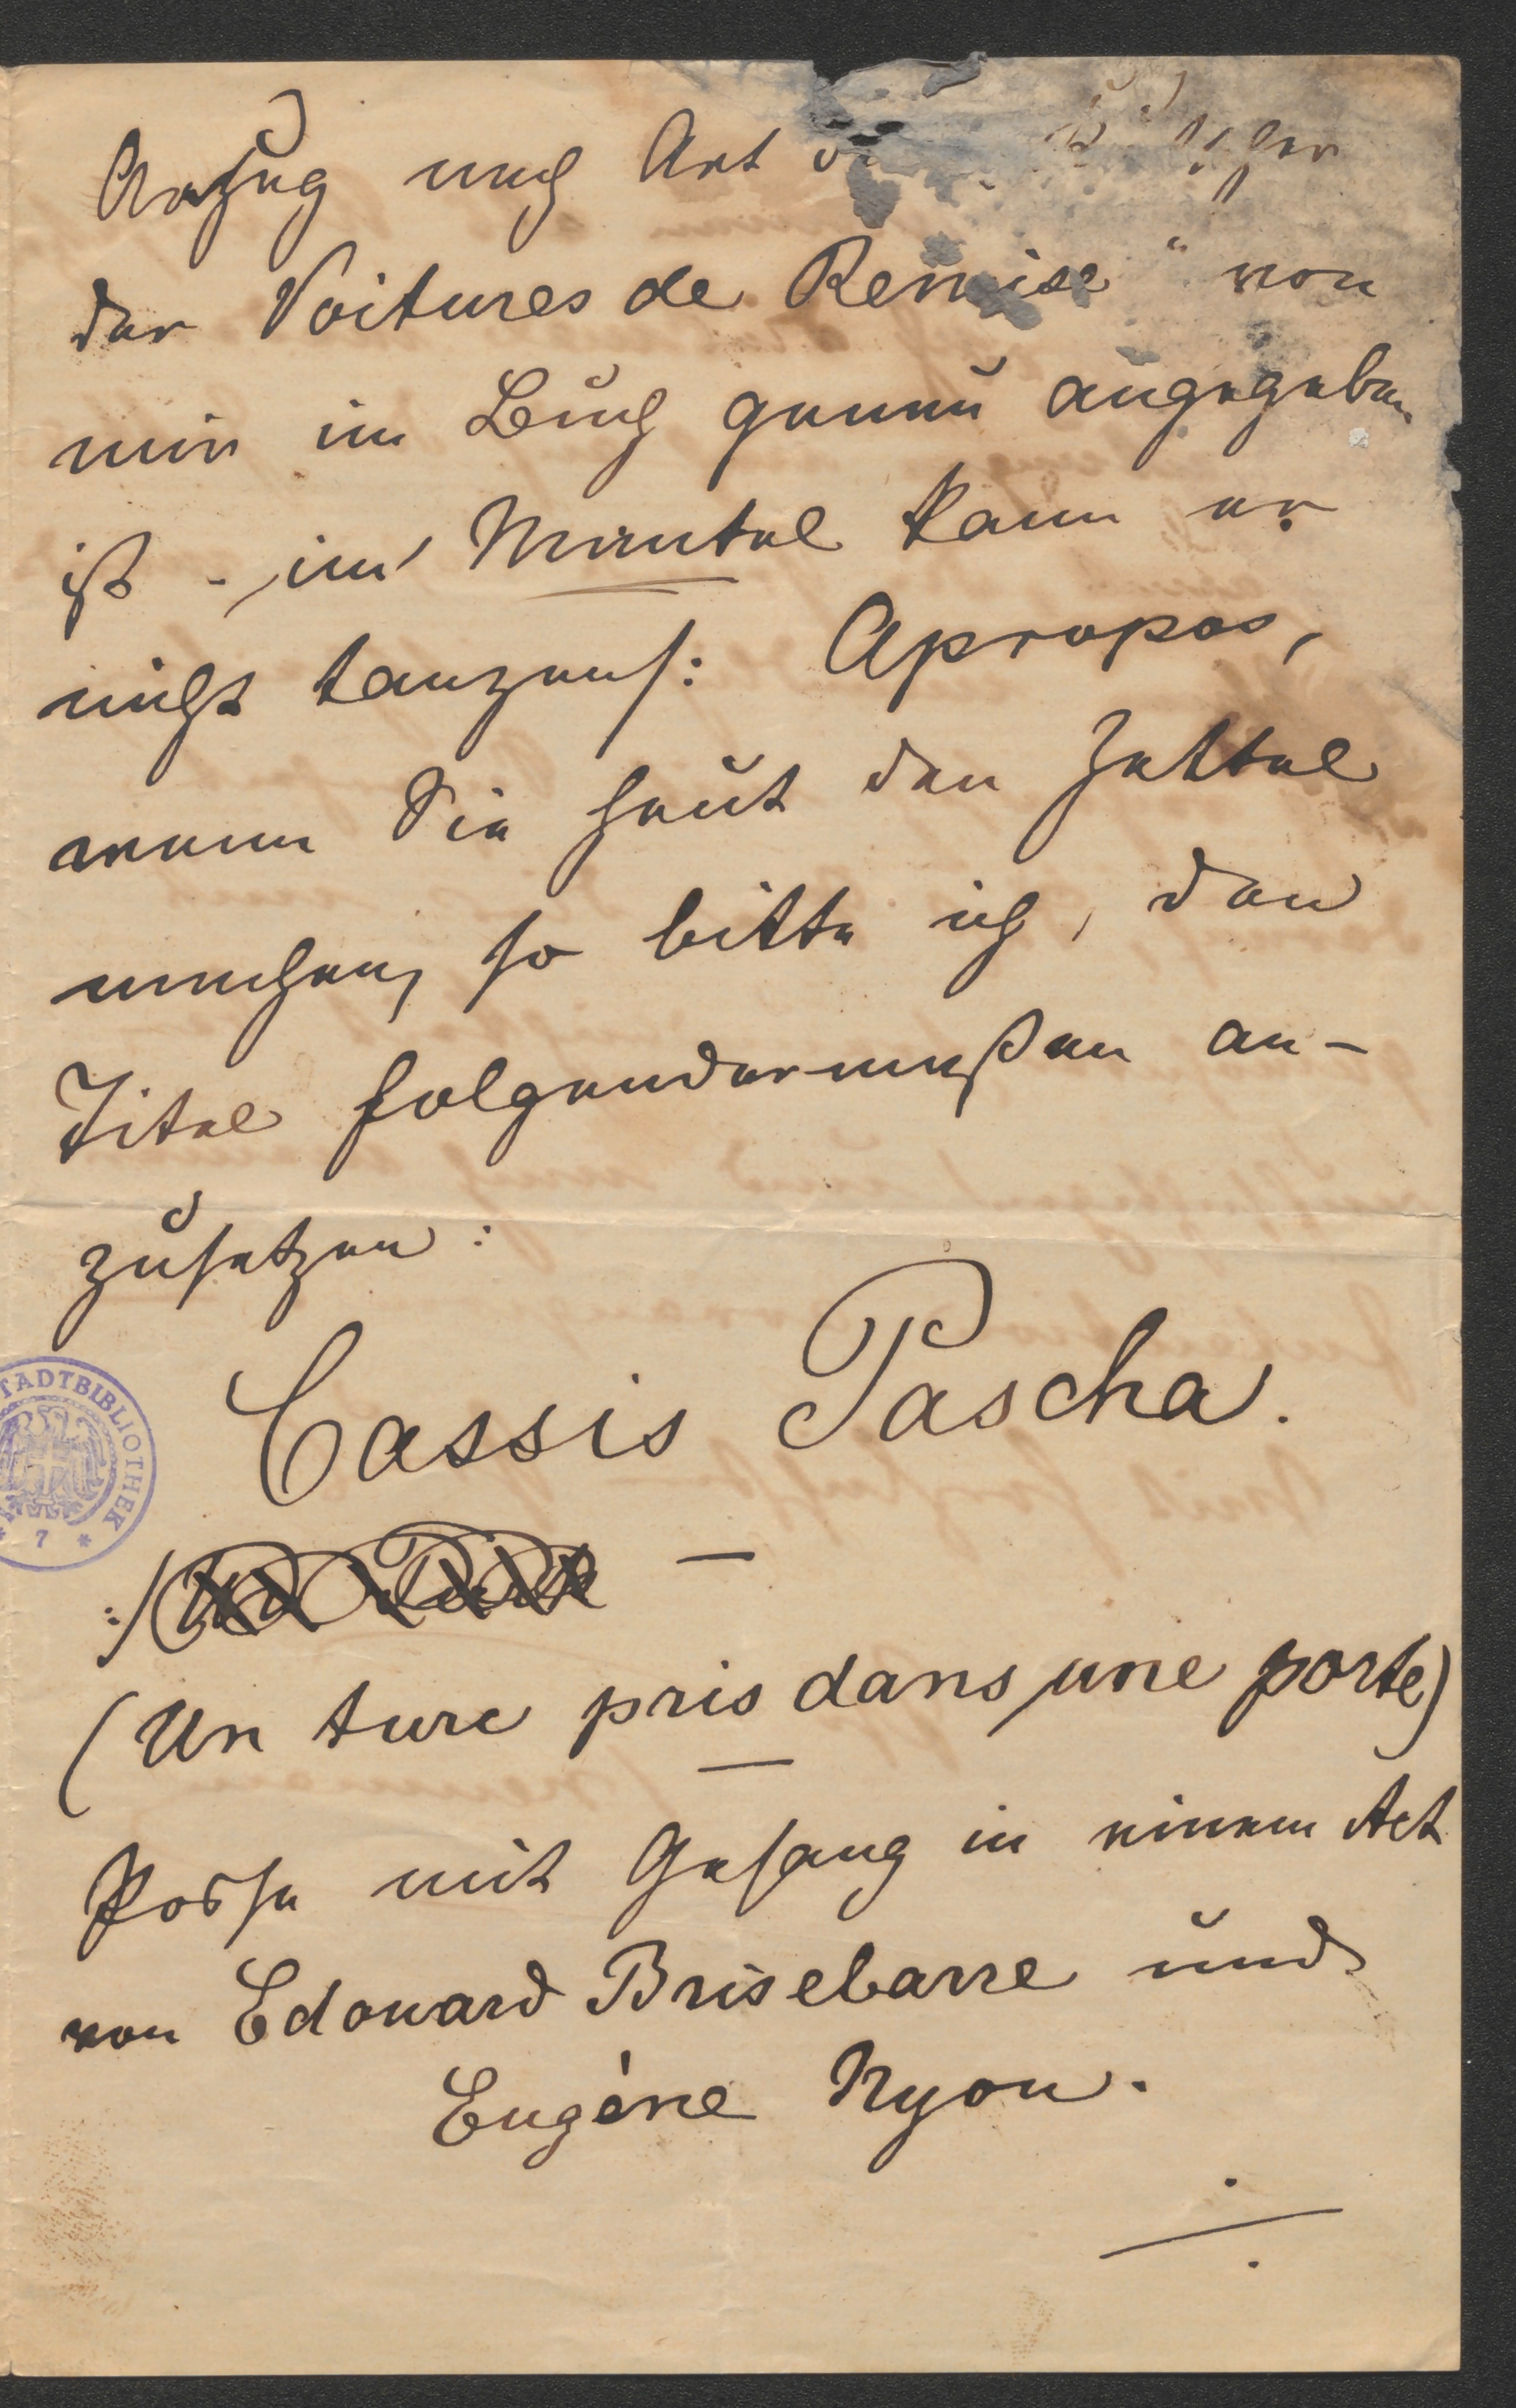 Anzug nach Art
der Voitures de Remise" von
mir im Buch genau angegeben
ist - im Mantel kann er
nicht tanzens: Apropos,
wenn Sie heut den Zettel
machen, so bitte ich, den
Titel folgendermaßen an-
zusetzen:
Cassis Pascha.
—
(Un turc pris dans une porte)
—
Posse mit Gesang in einem Act
von Edouard Brisebarre und
Eugène Nyon.
STADTBIBLIOTHEK
* 7 *